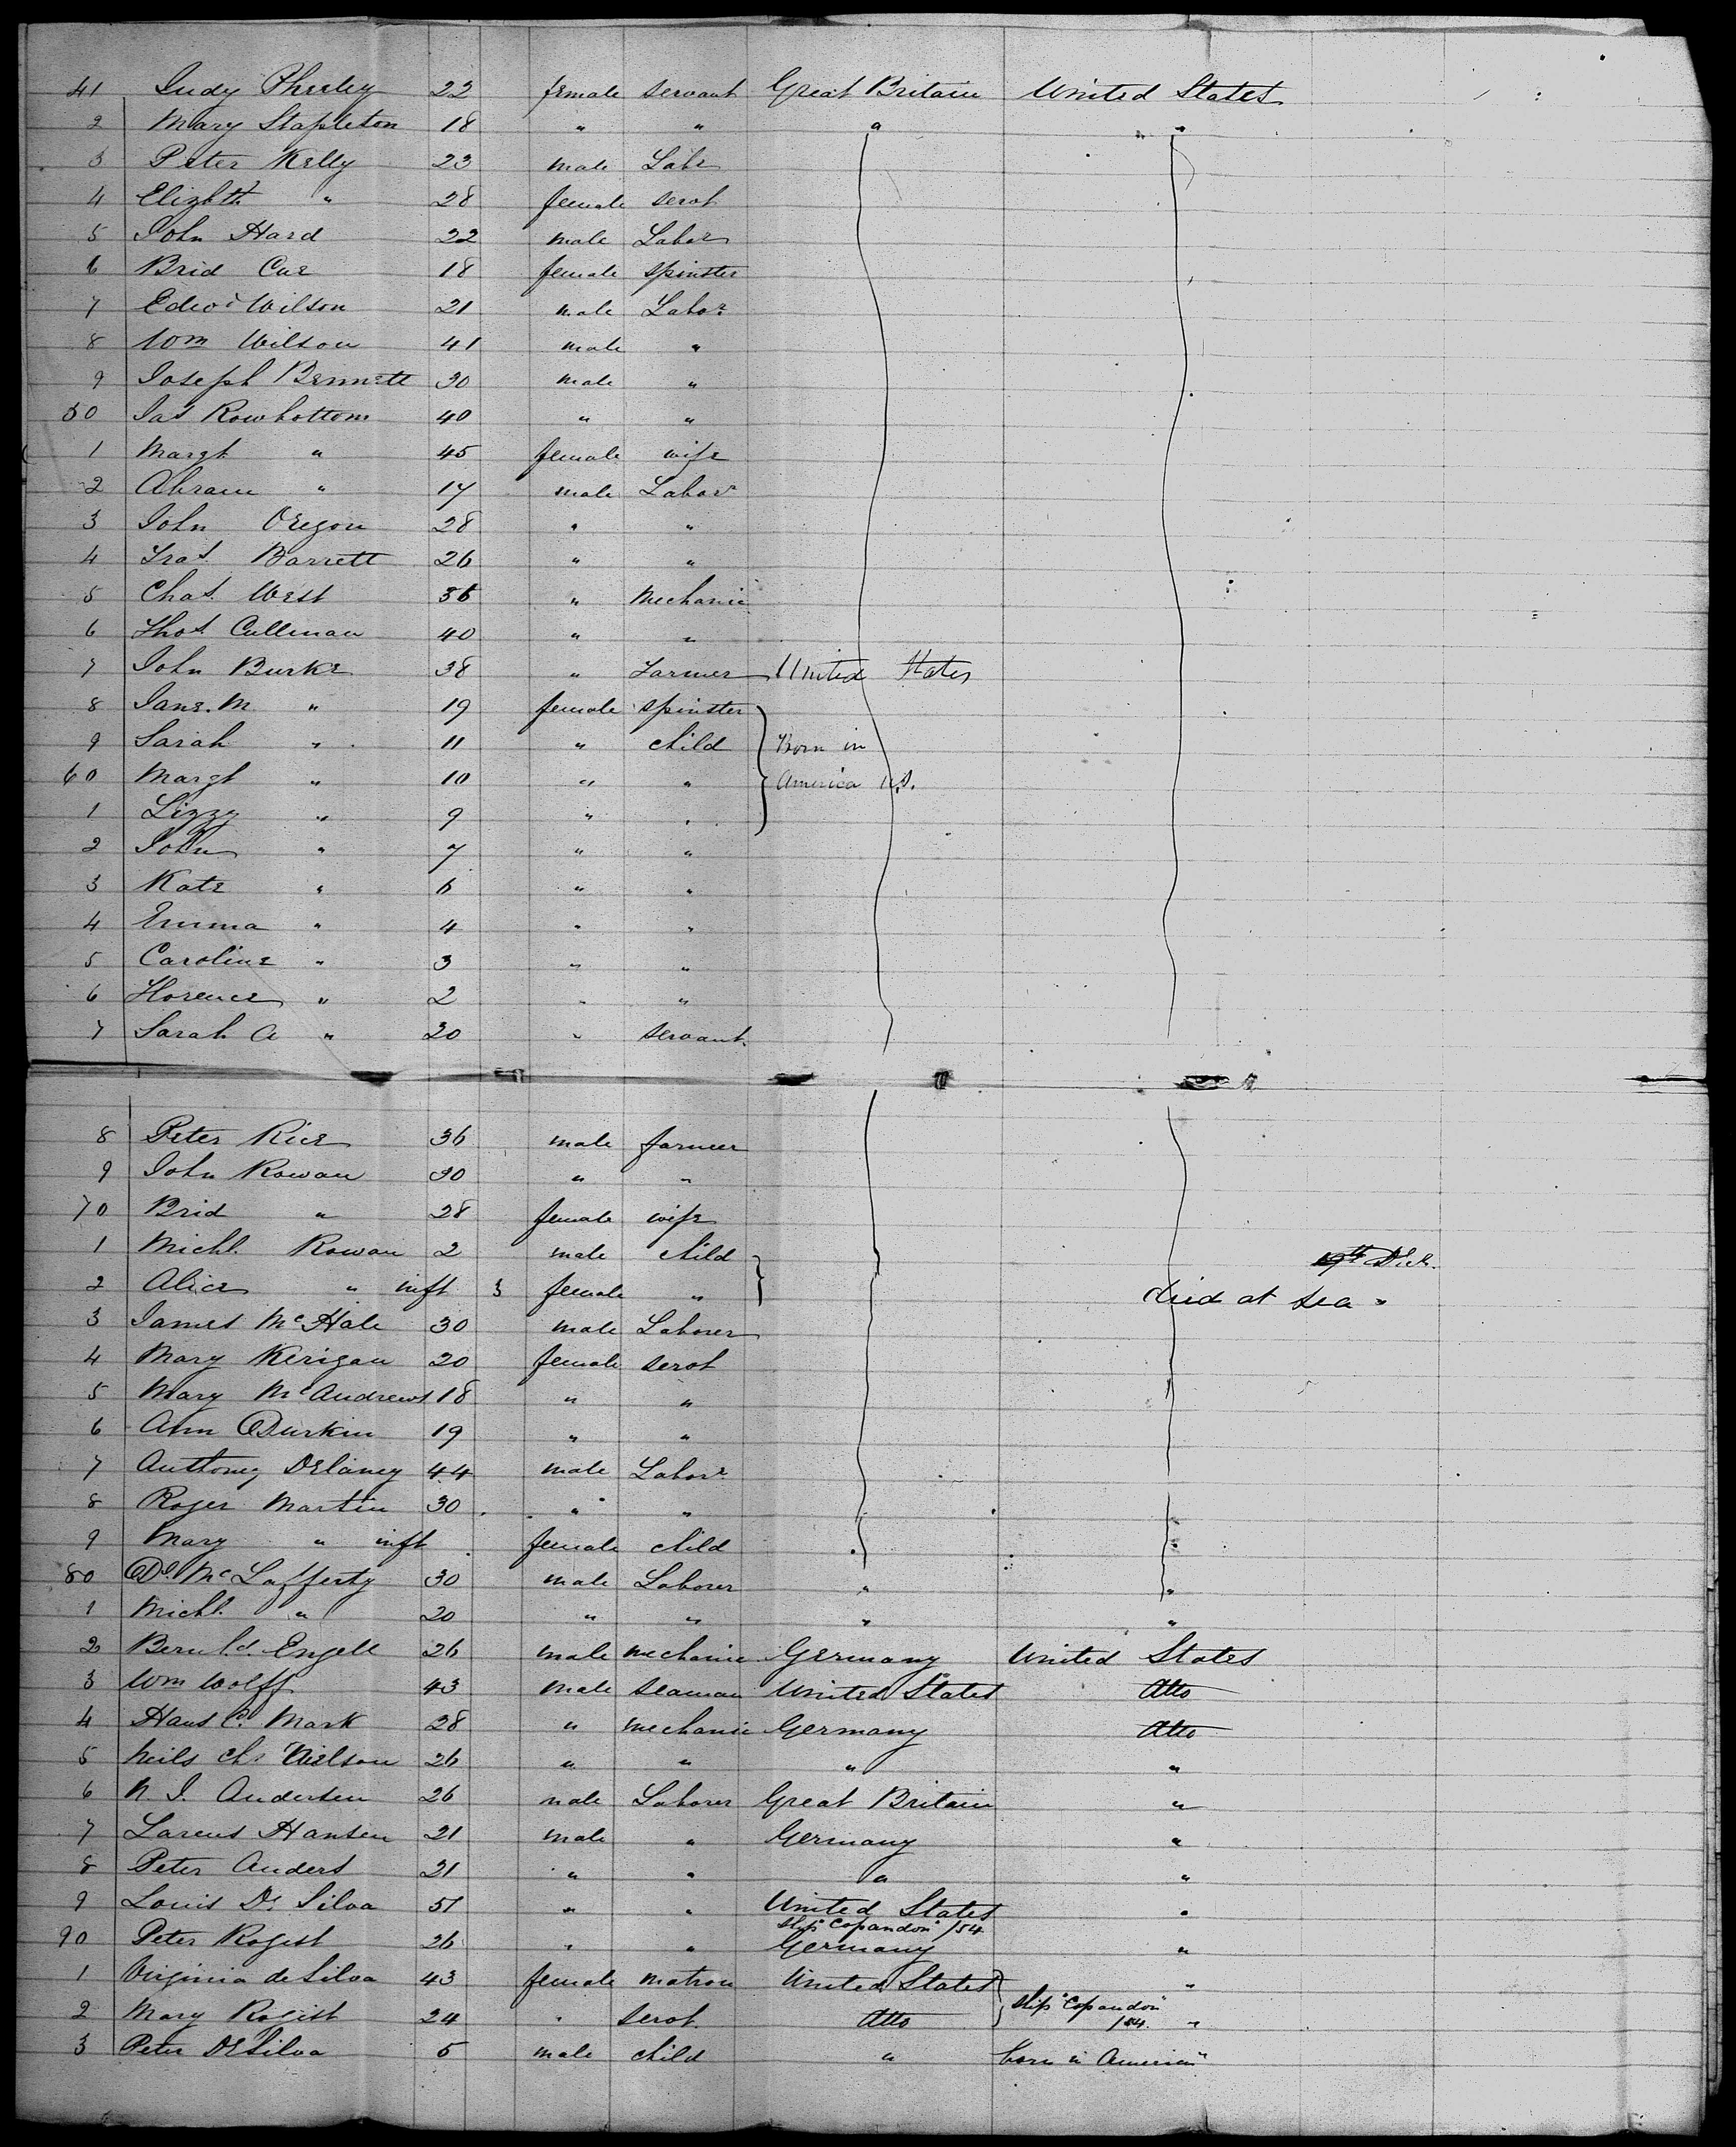 41 Judy Pheeley 22 female servant Great Britain United States
2 Mary Stapleton 18 " " " "
3 Peter Kelly 23 male Labr
4 Elizbth " 28 female servt
5 John Hard 22 male Labor
6 Brid Cue 18 female spinster
7 Edwd Wilson 21 male Labor
8 Wm Wilson 41 male "
9 Joseph Bennett 30 male "
50 Jas Rowbottom 40 " "
1 Margt " 45 female wife
2 Abram " 17 male Labor
3 John Oregon 28 " "
4 Fras. Barrett 26 " "
5 Chas. West 36 " Mechanic
6 Thos. Cullinan 40 " "
7 John Burke 38 " Farmer United States
8 Jane. M. " 19 female spinster
9 Sarah " 11 " child Born in
60 Margt " 10 " " America U.S.
1 Lizzy " 9 " "
2 John " 7 " "
3 Kate " 6 " "
4 Emma " 4 " "
5 Caroline " 3 " "
6 Florence " 2 " "
7 Sarah A " 20 " servant
8 Peter Rice 36 male farmer
9 John Rowan 30 " "
70 Brid " 28 female wife
1 Michl. Rowan 2 male child
2 Alice " inft 3 female " died at sea "
3 James McHale 30 male Laborer
4 Mary Kerigan 20 female servt
5 Mary McAndrews 18 " "
6 Ann Durkin 19 " "
7 Anthony Delaney 44 male Labor
8 Roger Martin 30 " "
9 Mary " inft female child
80 Dl. McLafferty 30 male Laborer " "
1 Michl. " 20 " " " "
2 Bernhd. Engell 26 male mechanic Germany United States
3 Wm Wolff 43 male seaman United States ditto
4 Hans C. Mark 28 " mechanic Germany ditto
5 Neils Chr Nielson 26 " " " "
6 N. J. Andersen 26 male Laborer Great Britain "
7 Larens Hansen 21 male " Germany "
8 Peter Anders 21 " " " "
9 Louis De Silva 51 " " United States "
ship "Copandon" /54
90 Peter Rogist 26 " " Germany "
1 Virginia de Silva 43 female matron United States "
2 Mary Rogist 24 " servt. ditto ship "Copandon" /54. "
3 Peter DeSilva 5 male child " born in America "